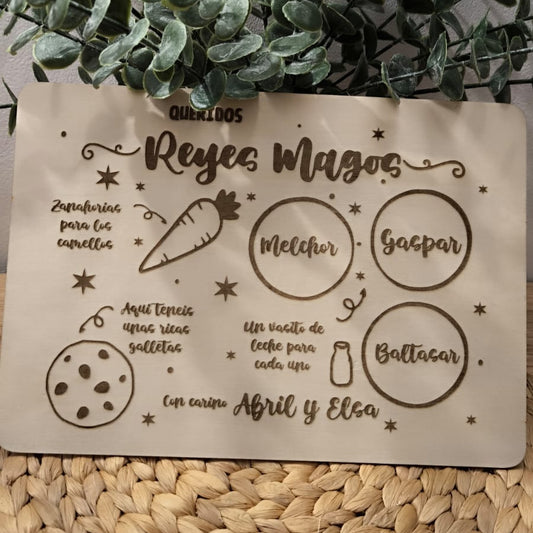 QUERIDOS
Reyes Magos
Zanahorias
para los
camellos
Melchor
Gaspar
Aquí teneis
unas ricas
galletas
Un vasito de
leche para
cada uno
Baltasar
Con cariño Abril y Elsa